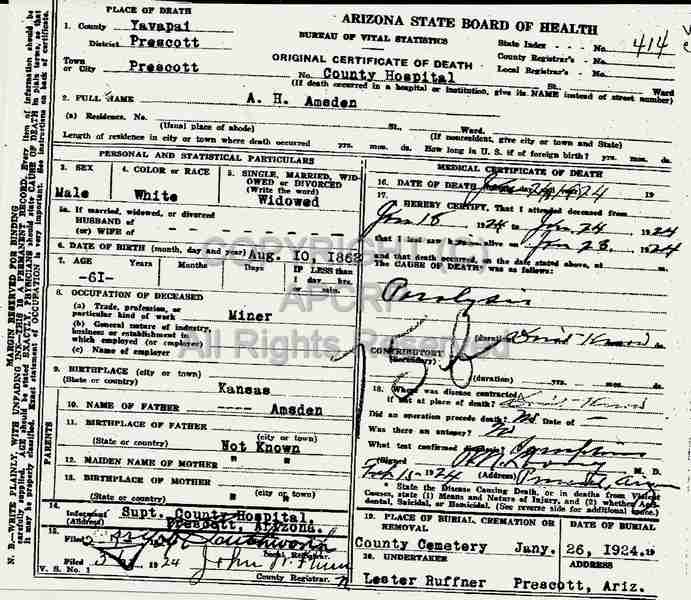 PLACE OF DEATH
ARIZONA STATE BOARD OF HEALTH
1. County Yavapai
BUREAU OF VITAL STATISTICS
State Index - No. 414
District Prescott
County Registrar's - No.
ORIGINAL CERTIFICATE OF DEATH
Local Registrar's - No.
Town or City Prescott
No. County Hospital St., Ward
(If death occurred in a hospital or institution, give its NAME instead of street number)
2. FULL NAME A. H. Amsden
(a) Residence. No. St., Ward.
(Usual place of abode) (If nonresident, give city or town and State)
Length of residence in city or town where death occurred yrs. mos. ds. How long in U. S. if of foreign birth? yrs. mos. ds.
PERSONAL AND STATISTICAL PARTICULARS
3. SEX
Male
4. COLOR or RACE
White
5. SINGLE, MARRIED, WIDOWED or DIVORCED
(Write the word)
Widowed
5a. If married, widowed, or divorced
HUSBAND of
(or) WIFE of
6. DATE OF BIRTH (month, day and year) Aug. 10, 1862
7. AGE Years Months Days IF LESS than
-61-
1 day hrs.
or min.
8. OCCUPATION OF DECEASED
(a) Trade, profession, or
particular kind of work Miner
(b) General nature of industry,
business or establishment in
which employed (or employer)
(c) Name of employer
9. BIRTHPLACE (city or town)
(State or country) Kansas
PARENTS
10. NAME OF FATHER Amsden
11. BIRTHPLACE OF FATHER
(city or town)
(State or country) Not Known
12. MAIDEN NAME OF MOTHER " "
13. BIRTHPLACE OF MOTHER
(city or town)
(State or country) " "
14. Informant Supt. County Hospital,
(Address) Prescott, Arizona.
15.
Filed
Local Registrar.
Filed 1924
County Registrar.
V. S. No. 1
MEDICAL CERTIFICATE OF DEATH
16. DATE OF DEATH Jan 24 1924 19
17.
I HEREBY CERTIFY, That I attended deceased from
Jan 18 1924 to Jan 24 1924
that I last saw alive on Jan 23 1924
and that death occurred, on the date stated above, at m.
The CAUSE OF DEATH was as follows:
Paralysis
(duration)
CONTRIBUTORY
(Secondary)
(duration) yrs. mos. ds.
18. Where was disease contracted
if not at place of death?
Did an operation precede death? No Date of -
Was there an autopsy? No
What test confirmed Symptoms
(Signed) M. D.
1924 (Address) Prescott, Ariz
* State the Disease Causing Death, or in deaths from Violent
Causes, state (1) Means and Nature of Injury, and (2) whether Accidental, Suicidal, or Homicidal. (See reverse side for additional space.)
19. PLACE OF BURIAL, CREMATION OR REMOVAL
County Cemetery
DATE OF BURIAL
Jany. 26, 1924. 19
20. UNDERTAKER
Lester Ruffner
ADDRESS
Prescott, Ariz.
MARGIN RESERVED FOR BINDING
N. B.—WRITE PLAINLY, WITH UNFADING INK—THIS IS A PERMANENT RECORD. Every item of information should be
carefully supplied. AGE should be stated EXACTLY. PHYSICIANS should state CAUSE OF DEATH in plain terms, so that
it may be properly classified. Exact statement of OCCUPATION is very important. See instructions on back of certificate.
COPYRIGHT (C)
APCRP
All Rights Reserved